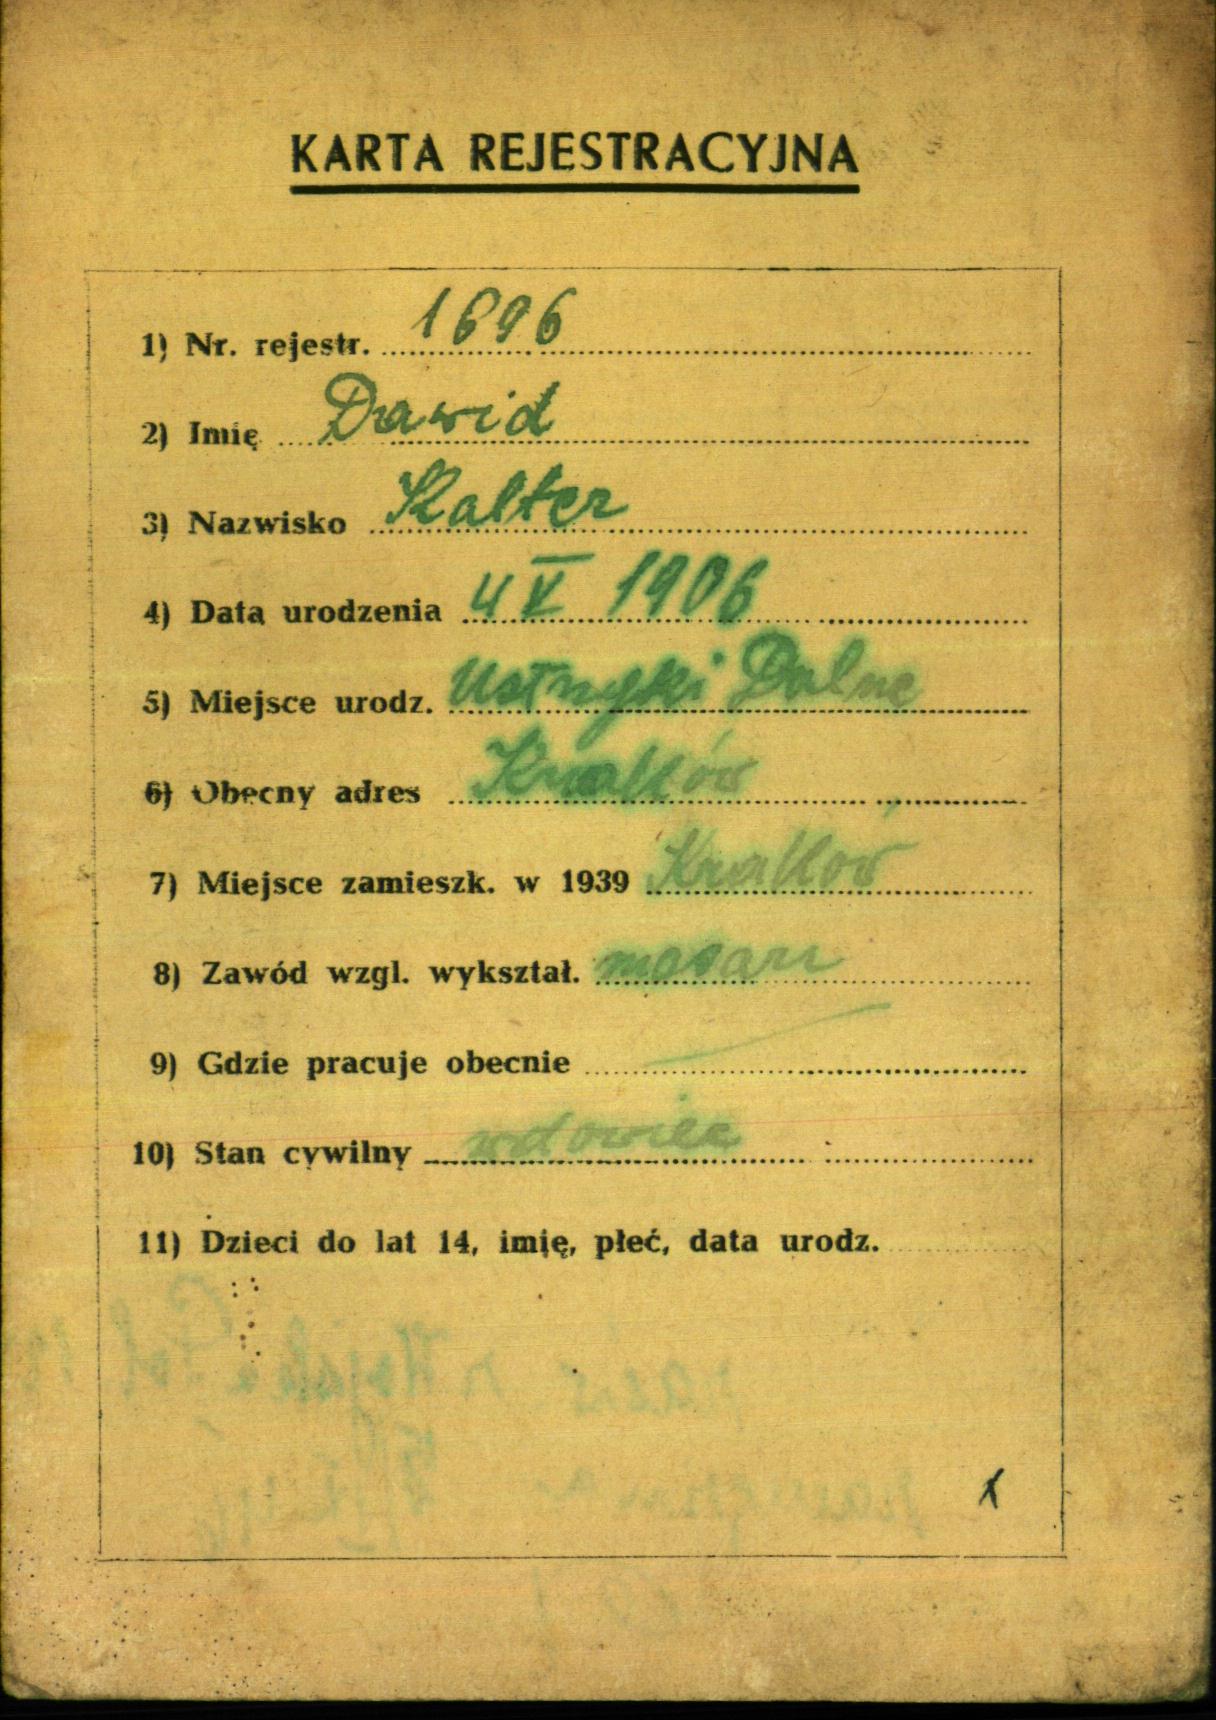 KARTA REJESTRACYJNA
1) Nr. rejestr. 1696
2) Imię Dawid
3) Nazwisko Kalter
4) Data urodzenia 4 V 1906
5) Miejsce urodz. Ustrzyki Dolne
6) Obecny adres Kraków
7) Miejsce zamieszk. w 1939 Kraków
8) Zawód wzgl. wykształ. masarz
9) Gdzie pracuje obecnie
10) Stan cywilny wdowiec
11) Dzieci do lat 14, imię, płeć, data urodz.